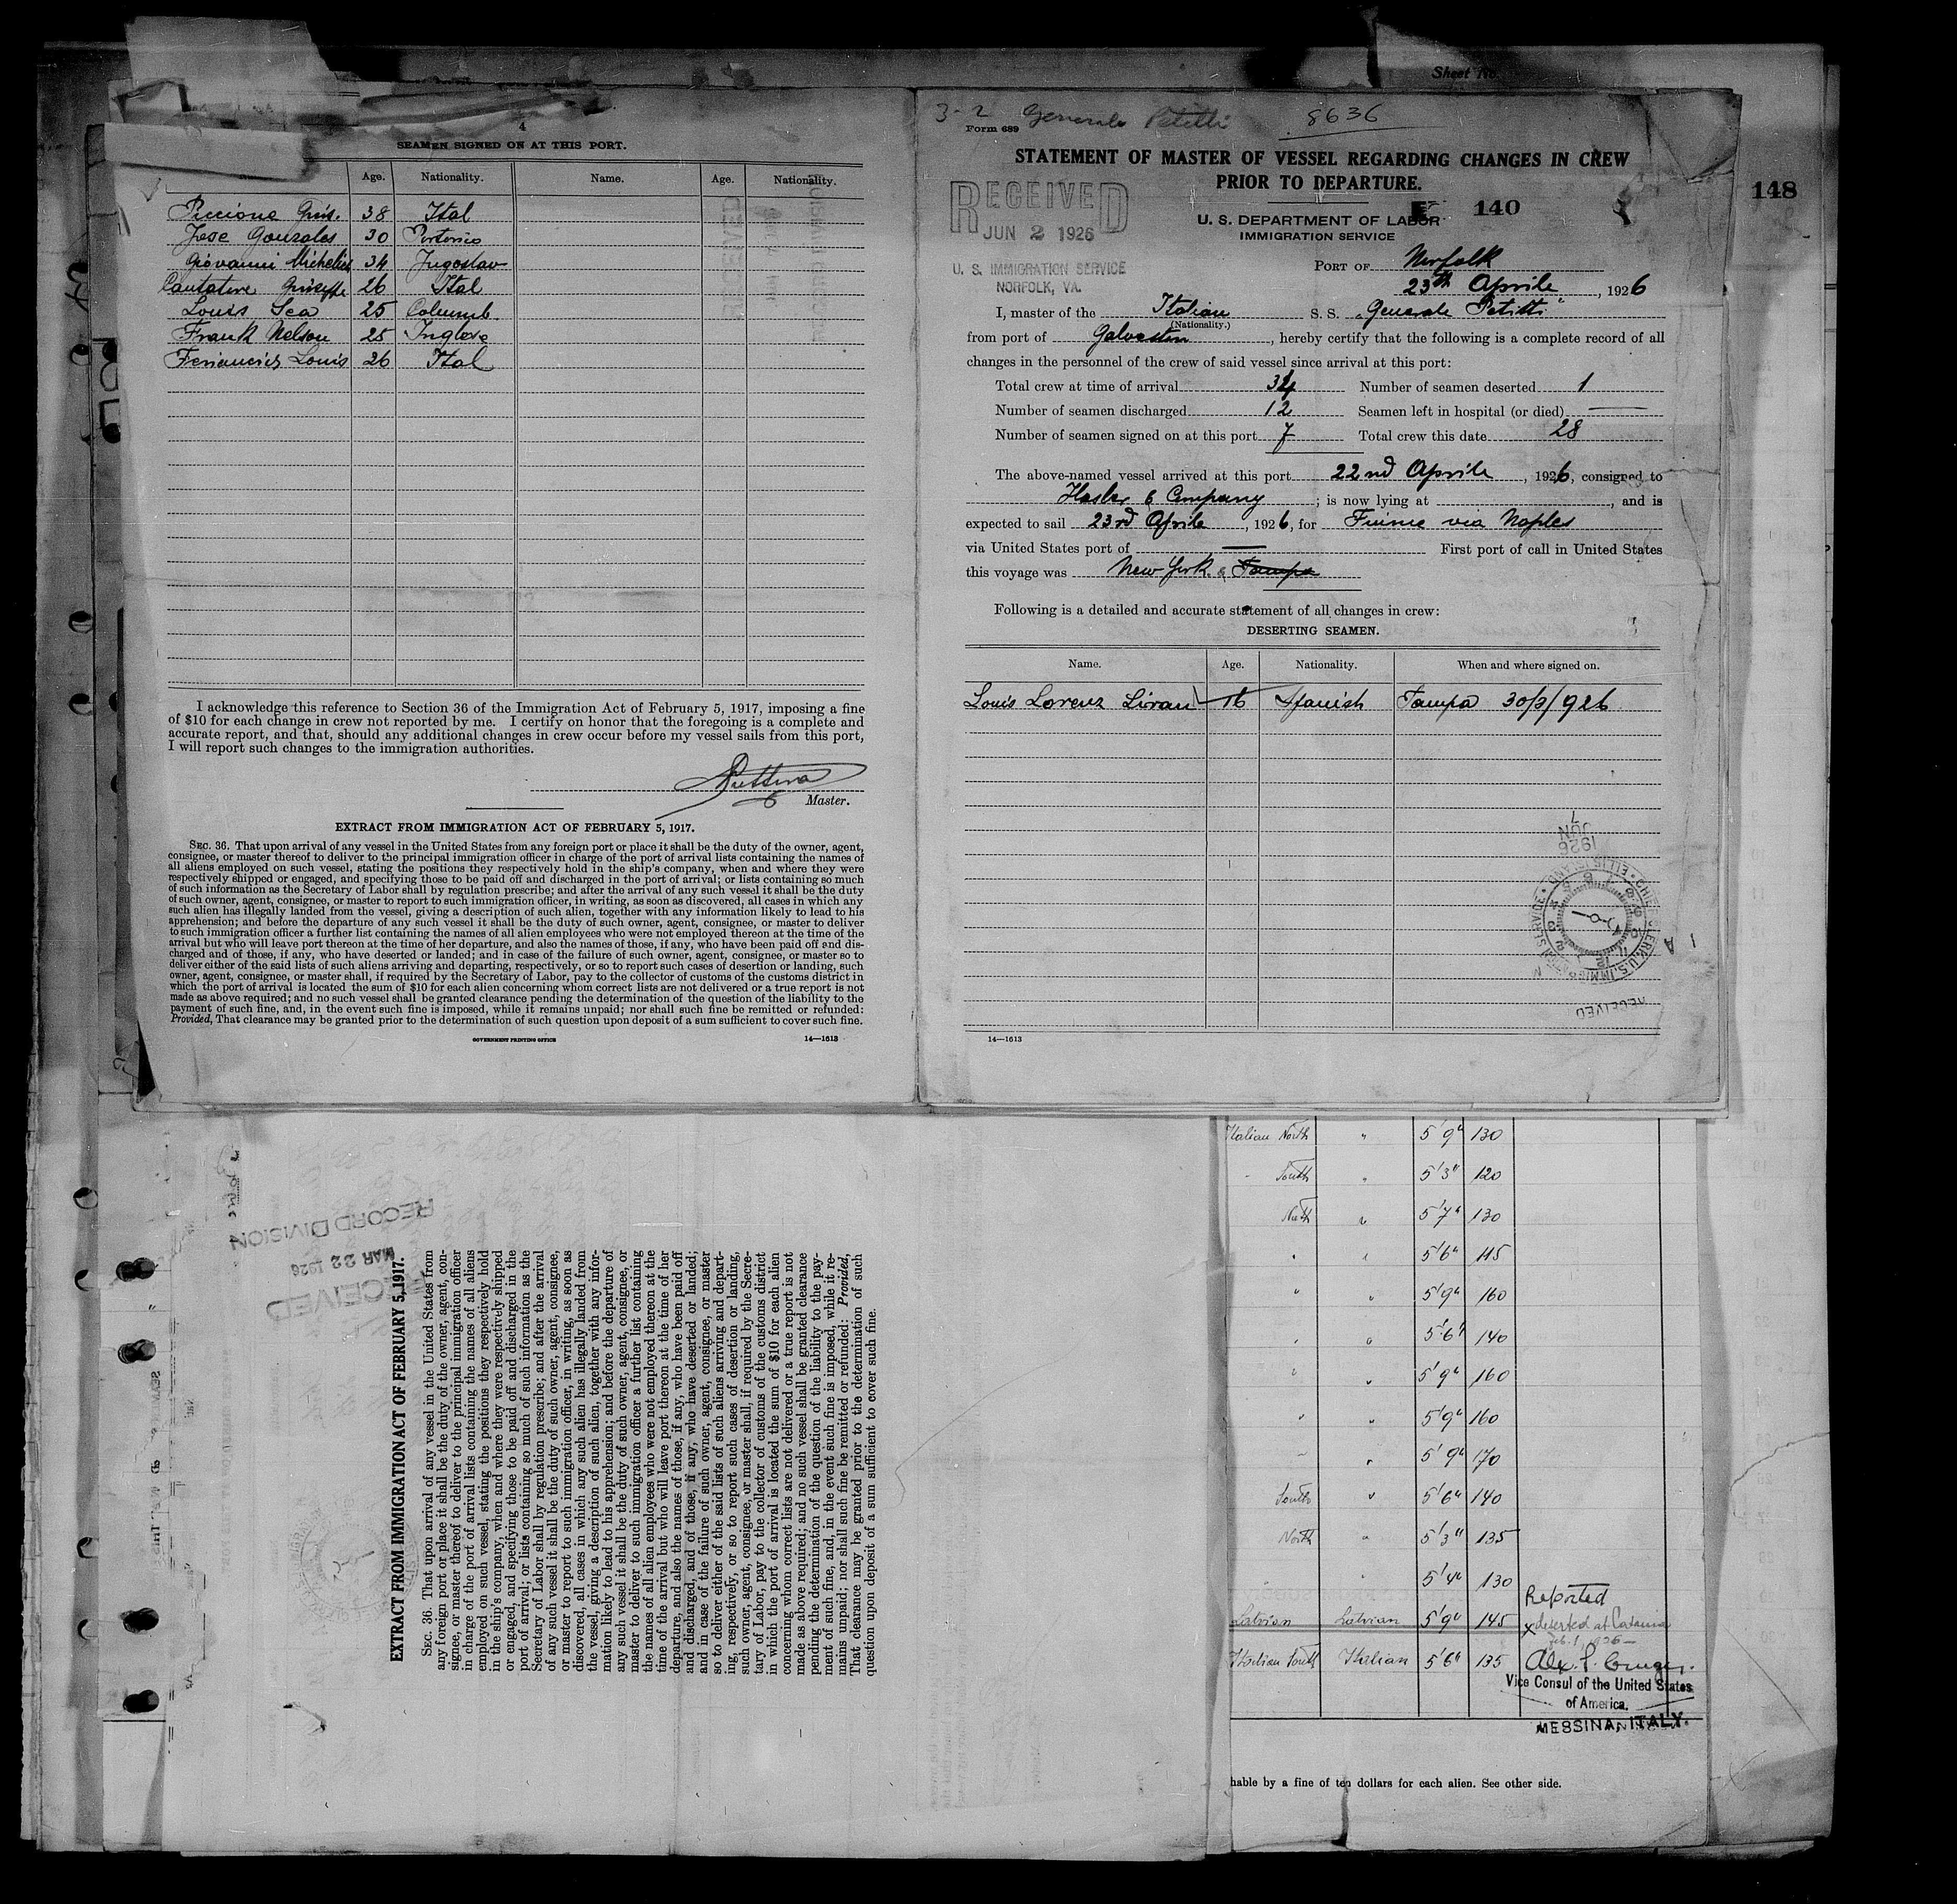 Sheet No.
148
4
SEAMEN SIGNED ON AT THIS PORT.
Age. Nationality. Name. Age. Nationality.
Piccione Gius. 38 Ital
Jose Gonzales 30 Portorico
Giovanni 34 Jugoslav
Cantatore Giuseppe 26 Ital
Louis Sea 25 Columb.
Frank Nelson 25 Inglese
Louis 26 Ital
I acknowledge this reference to Section 36 of the Immigration Act of February 5, 1917, imposing a fine
of $10 for each change in crew not reported by me. I certify on honor that the foregoing is a complete and
accurate report, and that, should any additional changes in crew occur before my vessel sails from this port,
I will report such changes to the immigration authorities.
Master.
EXTRACT FROM IMMIGRATION ACT OF FEBRUARY 5, 1917.
SEC. 36. That upon arrival of any vessel in the United States from any foreign port or place it shall be the duty of the owner, agent,
consignee, or master thereof to deliver to the principal immigration officer in charge of the port of arrival lists containing the names of
all aliens employed on such vessel, stating the positions they respectively hold in the ship's company, when and where they were
respectively shipped or engaged, and specifying those to be paid off and discharged in the port of arrival; or lists containing so much
of such information as the Secretary of Labor shall by regulation prescribe; and after the arrival of any such vessel it shall be the duty
of such owner, agent, consignee, or master to report to such immigration officer, in writing, as soon as discovered, all cases in which any
such alien has illegally landed from the vessel, giving a description of such alien, together with any information likely to lead to his
apprehension; and before the departure of any such vessel it shall be the duty of such owner, agent, consignee, or master to deliver
to such immigration officer a further list containing the names of all alien employees who were not employed thereon at the time of the
arrival but who will leave port thereon at the time of her departure, and also the names of those, if any, who have been paid off and dis-
charged and of those, if any, who have deserted or landed; and in case of the failure of such owner, agent, consignee, or master so to
deliver either of the said lists of such aliens arriving and departing, respectively, or so to report such cases of desertion or landing, such
owner, agent, consignee, or master shall, if required by the Secretary of Labor, pay to the collector of customs of the customs district in
which the port of arrival is located the sum of $10 for each alien concerning whom correct lists are not delivered or a true report is not
made as above required; and no such vessel shall be granted clearance pending the determination of the question of the liability to the
payment of such fine, and, in the event such fine is imposed, while it remains unpaid; nor shall such fine be remitted or refunded:
Provided, That clearance may be granted prior to the determination of such question upon deposit of a sum sufficient to cover such fine.
GOVERNMENT PRINTING OFFICE 14—1613
3-2 Generale Petitti 8636
Form 689
STATEMENT OF MASTER OF VESSEL REGARDING CHANGES IN CREW
PRIOR TO DEPARTURE.
RECEIVED
JUN 2 1926
U. S. IMMIGRATION SERVICE
NORFOLK, VA.
140
U. S. DEPARTMENT OF LABOR
IMMIGRATION SERVICE
PORT OF Norfolk
23th Aprile, 1926
I, master of the Italian S. S. "Generale Petitti"
(Nationality.)
from port of Galveston, hereby certify that the following is a complete record of all
changes in the personnel of the crew of said vessel since arrival at this port:
Total crew at time of arrival 34 Number of seamen deserted 1
Number of seamen discharged 12 Seamen left in hospital (or died) —
Number of seamen signed on at this port 7 Total crew this date 28
The above-named vessel arrived at this port 22nd Aprile, 1926, consigned to
Hasler & Company; is now lying at , and is
expected to sail 23rd Aprile, 1926, for Fiume via Naples
via United States port of — First port of call in United States
this voyage was New York & Tampa
Following is a detailed and accurate statement of all changes in crew:
DESERTING SEAMEN.
Name. Age. Nationality. When and where signed on.
Louis Lorenz Livan 16 Spanish Tampa 30/3/926
1926
JUN
7
RECEIVED
14—1613
RECORD DIVISION
MAR 22 1926
RECEIVED
EXTRACT FROM IMMIGRATION ACT OF FEBRUARY 5, 1917.
SEC. 36. That upon arrival of any vessel in the United States from
any foreign port or place it shall be the duty of the owner, agent, con-
signee, or master thereof to deliver to the principal immigration officer
in charge of the port of arrival lists containing the names of all aliens
employed on such vessel, stating the positions they respectively hold
in the ship's company, when and where they were respectively shipped
or engaged, and specifying those to be paid off and discharged in the
port of arrival; or lists containing so much of such information as the
Secretary of Labor shall by regulation prescribe; and after the arrival
of any such vessel it shall be the duty of such owner, agent, consignee,
or master to report to such immigration officer, in writing, as soon as
discovered, all cases in which any such alien has illegally landed from
the vessel, giving a description of such alien, together with any infor-
mation likely to lead to his apprehension; and before the departure of
any such vessel it shall be the duty of such owner, agent, consignee, or
master to deliver to such immigration officer a further list containing
the names of all alien employees who were not employed thereon at the
time of the arrival but who will leave port thereon at the time of her
departure, and also the names of those, if any, who have been paid off
and discharged, and of those, if any, who have deserted or landed;
and in case of the failure of such owner, agent, consignee, or master
so to deliver either of the said lists of such aliens arriving and depart-
ing, respectively, or so to report such cases of desertion or landing,
such owner, agent, consignee, or master shall, if required by the Secre-
tary of Labor, pay to the collector of customs of the customs district
in which the port of arrival is located the sum of $10 for each alien
concerning whom correct lists are not delivered or a true report is not
made as above required; and no such vessel shall be granted clearance
pending the determination of the question of the liability to the pay-
ment of such fine, and, in the event such fine is imposed, while it re-
mains unpaid; nor shall such fine be remitted or refunded: Provided,
That clearance may be granted prior to the determination of such
question upon deposit of a sum sufficient to cover such fine.
Italian North " 5'9" 130
" South " 5'3" 120
North " 5'7" 130
" " 5'6" 115
" " 5'9" 160
" " 5'6" 140
" " 5'9" 160
" " 5'9" 160
" " 5'9" 170
South " 5'6" 140
North " 5'3" 135
" " 5'4" 130
Reported
Latvian Latvian 5'9" 145 x deserted at Catania
Feb. 1, 1926—
Italian South Italian 5'6" 135 Alex. P. Cruger.
Vice Consul of the United States
of America.
MESSINA, ITALY.
hable by a fine of ten dollars for each alien. See other side.